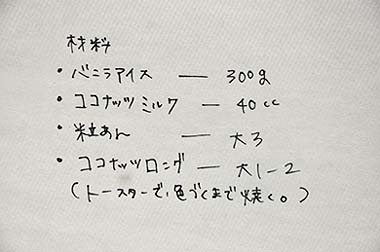 材料
・バニラアイス — 300g
・ココナッツミルク — 40cc
・粒あん — 大3
・ココナッツロング — 大1-2
(トースターで、色づくまで焼く。)